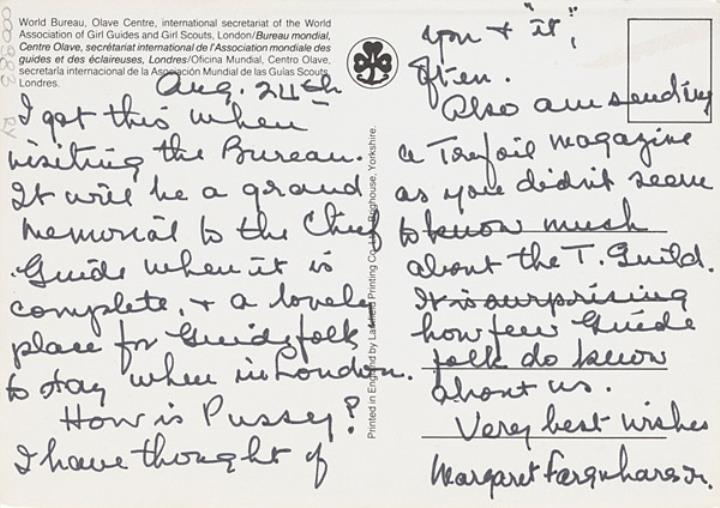 World Bureau, Olave Centre, international secretariat of the World
Association of Girl Guides and Girl Scouts, London/Bureau mondial,
Centre Olave, secrétariat international de l'Association mondiale des
guides et des éclaireuses, Londres/Oficina Mundial, Centro Olave,
secretaría internacional de la Asociación Mundial de las Guías Scouts,
Londres.
Aug. 24th
I got this when
visiting the Bureau.
It will be a grand
memorial to the Chief
Guide when it is
complete, + a lovely
place for Guidefolk
to stay when in London.
How is Pussey?
I have thought of
you + "it",
often.
Also am sending
a Trefoil magazine
as you didn't seem
to know much
about the T. Guild.
It is surprising
how few Guide
folk do know
about us.
Very best wishes
Margaret Farquharson.
Printed in England by Printing Co. Brighouse, Yorkshire.
000983